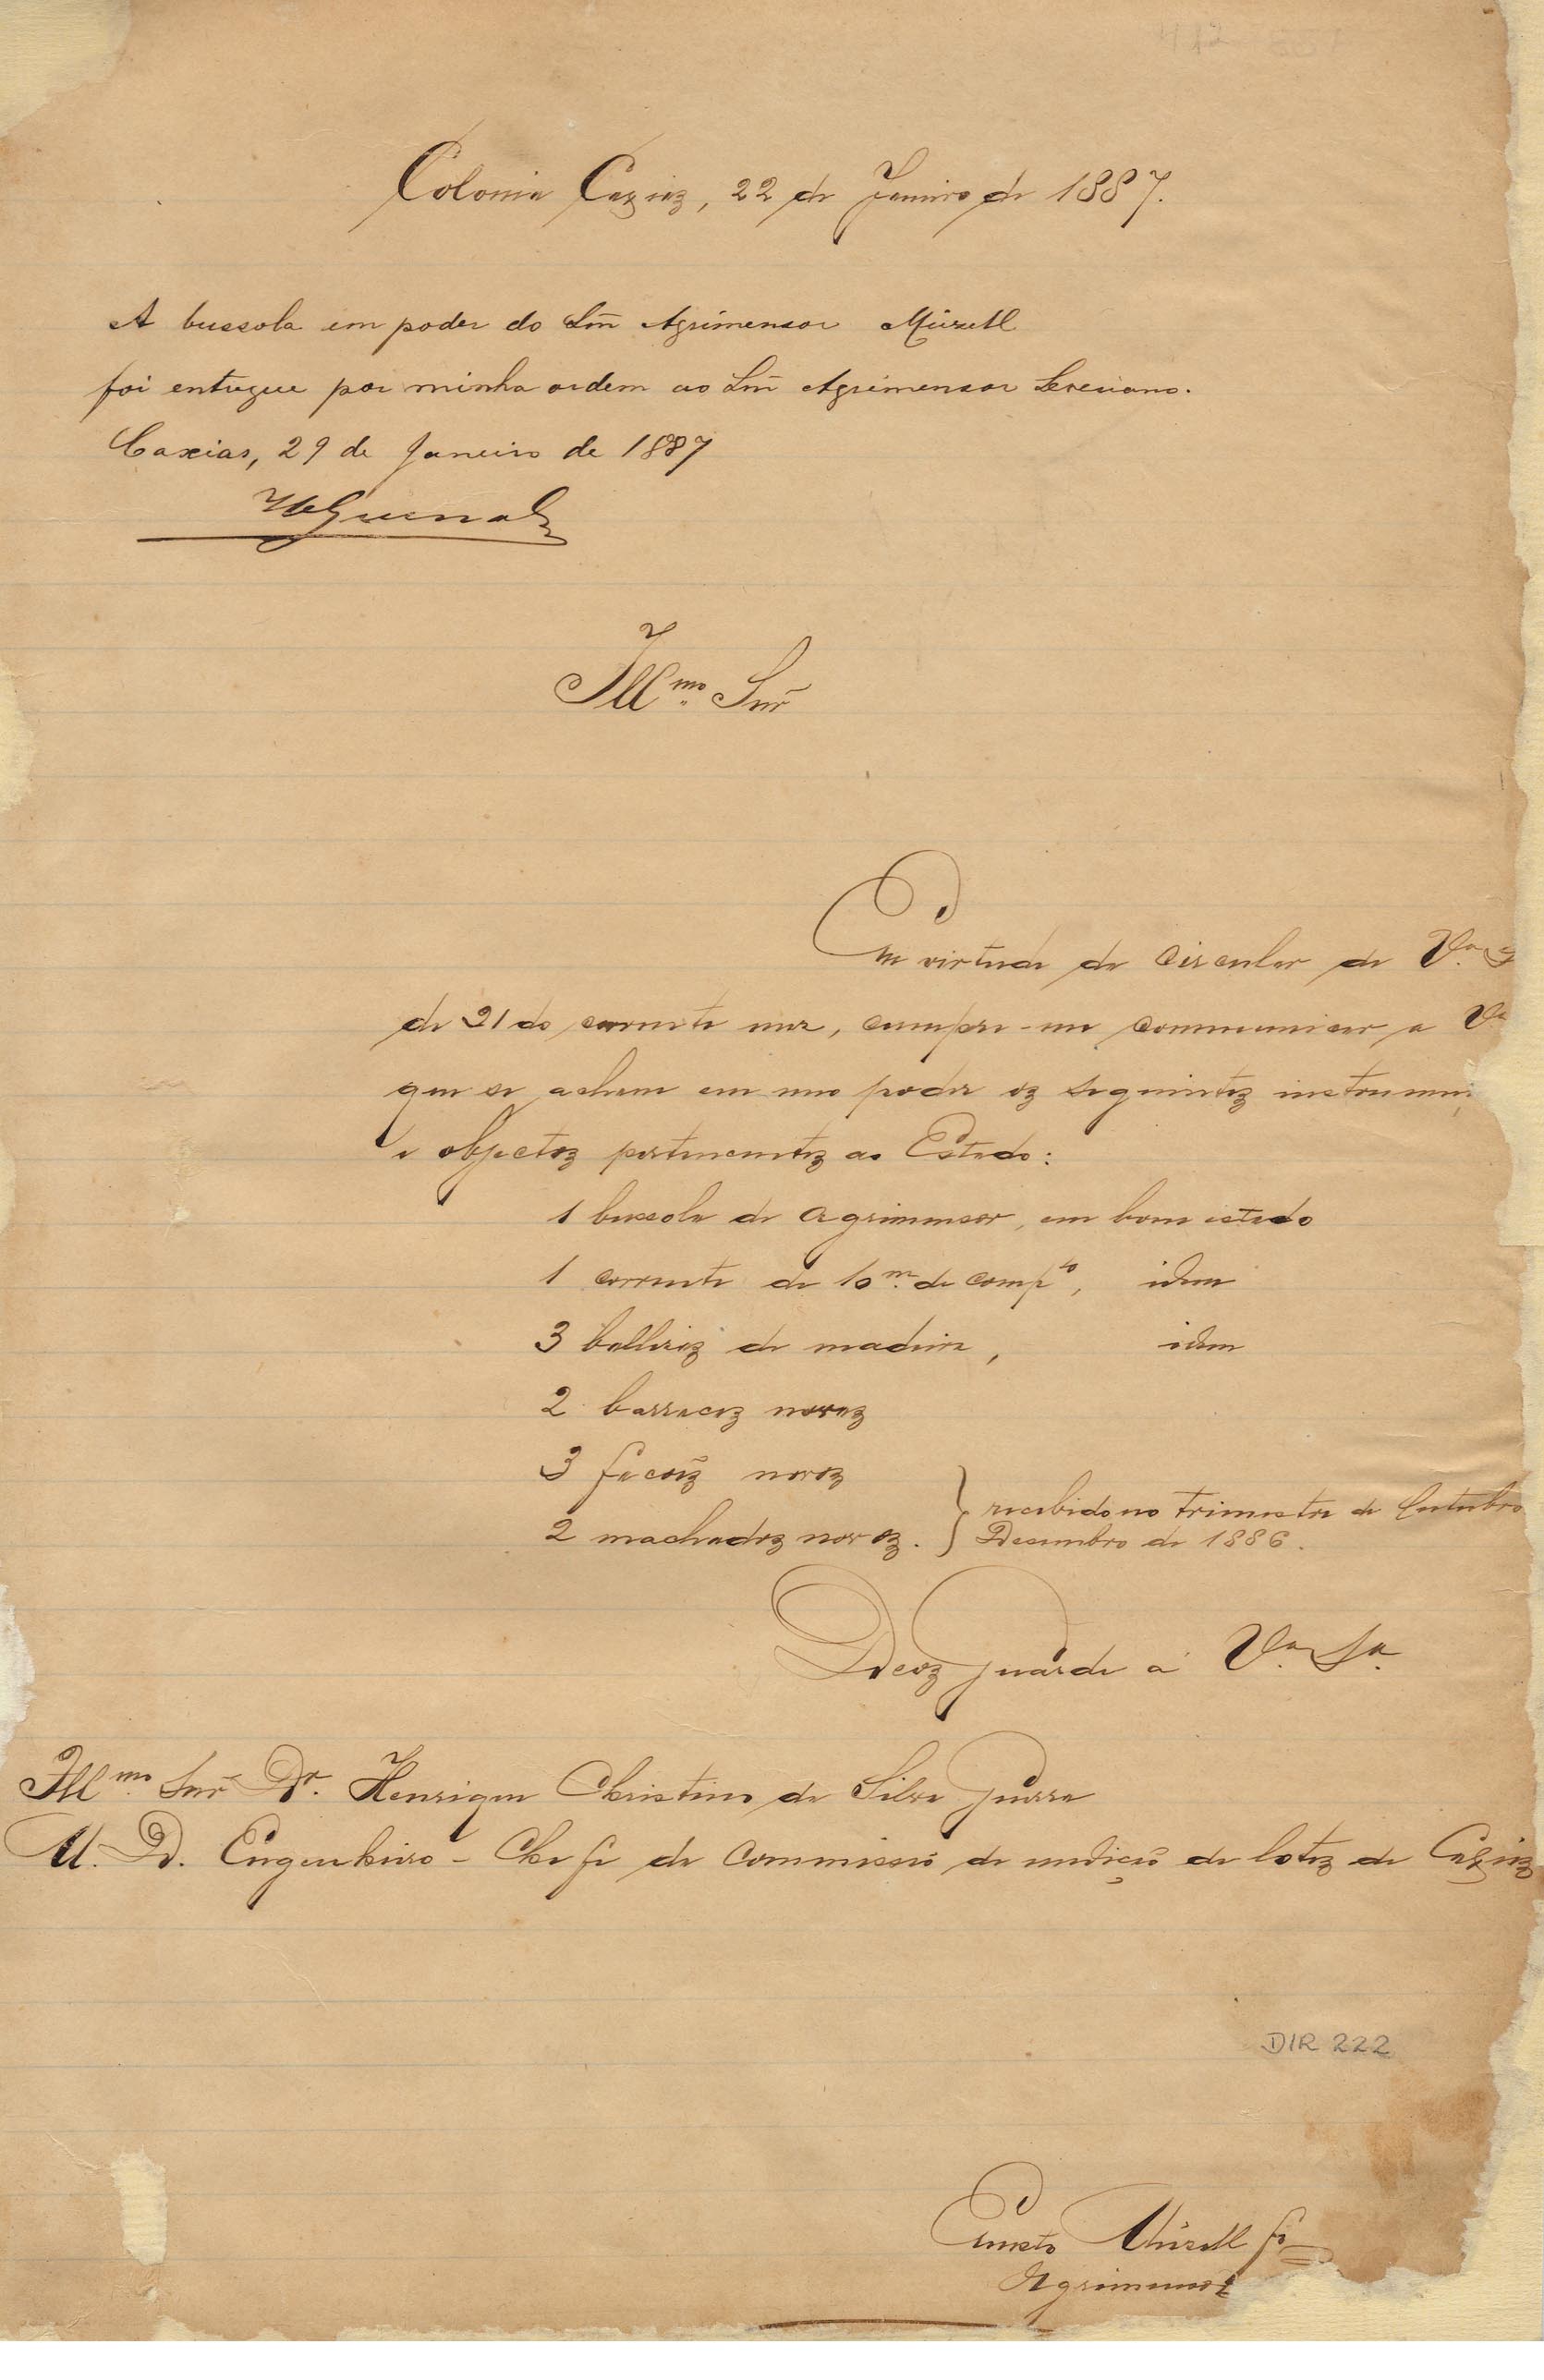 Colonia Caxias, 22 de Janeiro de 1887.
A bussola em poder do Snr̃ Agrimensor Mürsell
foi entregue por minha ordem ao Snr̃ Agrimensor Severiano.
Caxias, 29 de Janeiro de 1887
Illmo. Snr̃
Em virtude da circular de Va. S
de 21 do corrente mez, cumpre-me communicar a Va
que se acham em meo poder os seguintes instrumen
e objectos pertencentes ao Estado:
1 bussola de agrimensor, em bom estado
1 corrente de 10m. de compto, idem
3 ballizas de madeira, idem
2 barracas novas
3 facões novos
2 machados novos. } recebido no trimestre de Outubro
Dezembro de 1886.
Deos guarde a Va. Sa.
Illmo. Snr̃ Dr. Henrique Christino da Silva Guerra
M. D. Engenheiro-Chefe da Commissão de medição de lotes de Caxias
DIR 222
Ernesto Mürsell fo
Agrimensor